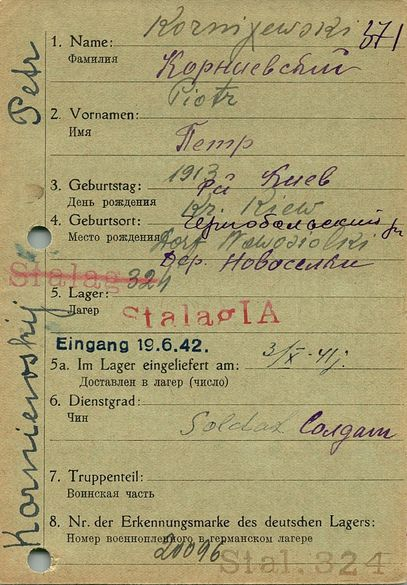 Kornijewski
371
1. Name:
Фамилия
Корниевский
Piotr
2. Vornamen:
Имя
Петр
1913
3. Geburtstag:
День рождения
Киев
Kr. Kiew
4. Geburtsort:
Место рождения
Чернобальский
Dorf Nowosiolki
Дер. Новоселки
Stalag 324
5. Lager:
Лагер
Stalag IA
Eingang 19.6.42.
5a. Im Lager eingeliefert am:
3/X-41j.
Доставлен в лагер (число)
6. Dienstgrad:
Чин
Soldat Солдат
7. Truppenteil:
Воинская часть
8. Nr. der Erkennungsmarke des deutschen Lagers:
Номер военнопленного в германском лагере
20096
Stal. 324
Kornienoskij Petr